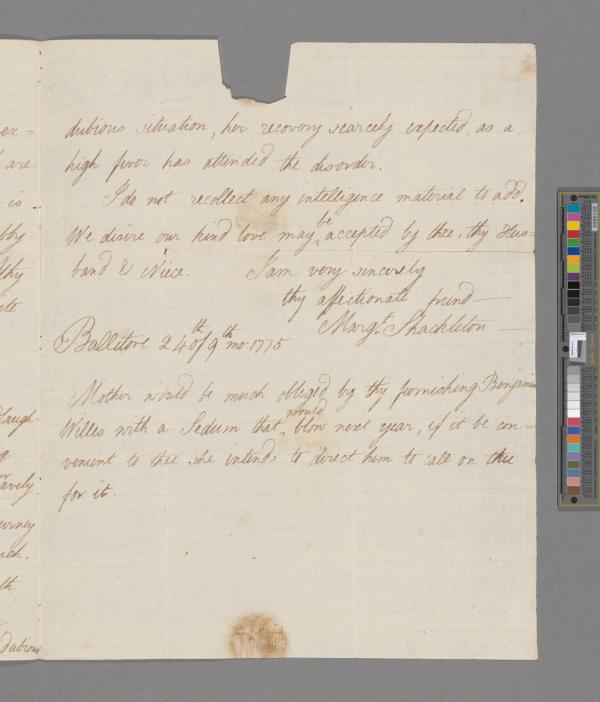 ex=
are
is
Why
dubious situation, her recovery scarcely expected, as a
high fever has attended the disorder.
I do not recollect any intelligence material to add.
We desire our kind love may be accepted by thee, thy Hus=
band & Niece. I am very sincerely
thy affectionate friend
Margt. Shackleton
Ballitore 24th of 9th mo: 1775
Mother would be much obliged by thy furnishing Benjamin
Willes with a Sedum that would blow next year, if it be con=
venient to thee she intends to direct him to call on thee
for it.
dubious